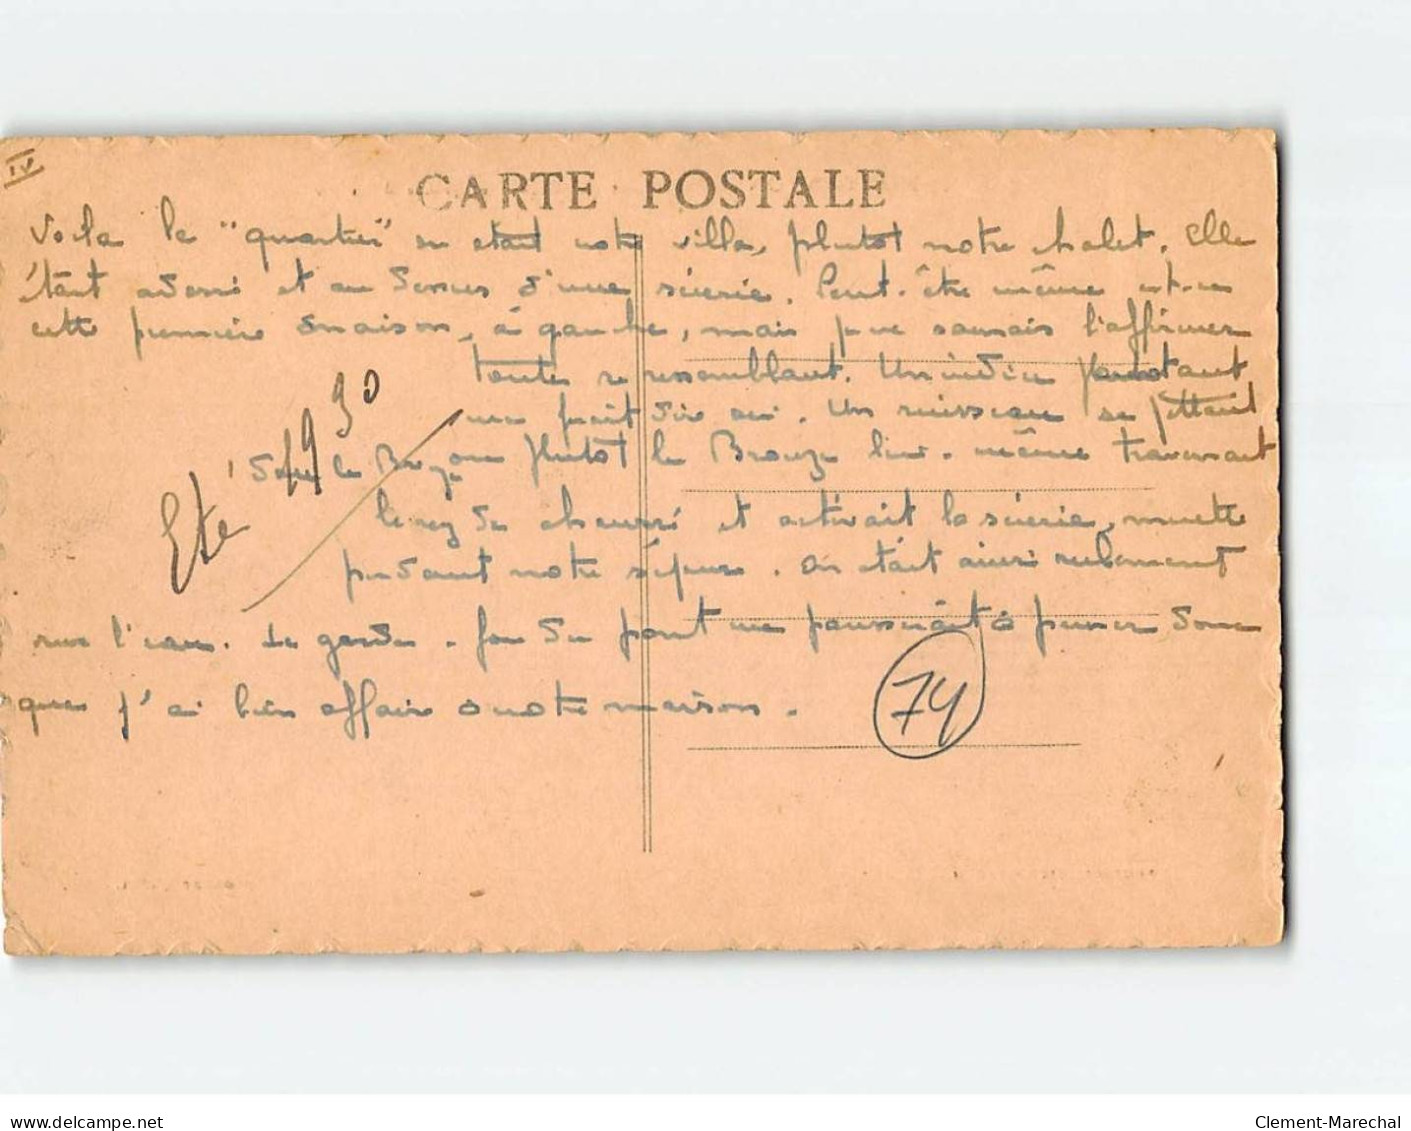 IV
CARTE POSTALE
Voilà le "quartier" où était notre villa, plutôt notre chalet. Elle
était adossé et au dessus d'une scierie. Peut-être même est-ce
cette première maison, à gauche, mais je ne saurais l'affirmer
toutes se ressemblant. Un indice pourtant
me fait dire oui. Un ruisseau se jettant
dans le Bronze ou plutôt le Bronze lui-même traversait
Eté 1930
le rez de chaussé et activait la scierie, muette
pendant notre séjour. On était ainsi réellement
sur l'eau. Le garde-fou du pont me pousserait à penser donc
que j'ai bien affaire à notre maison.
74
Clement-Marechal